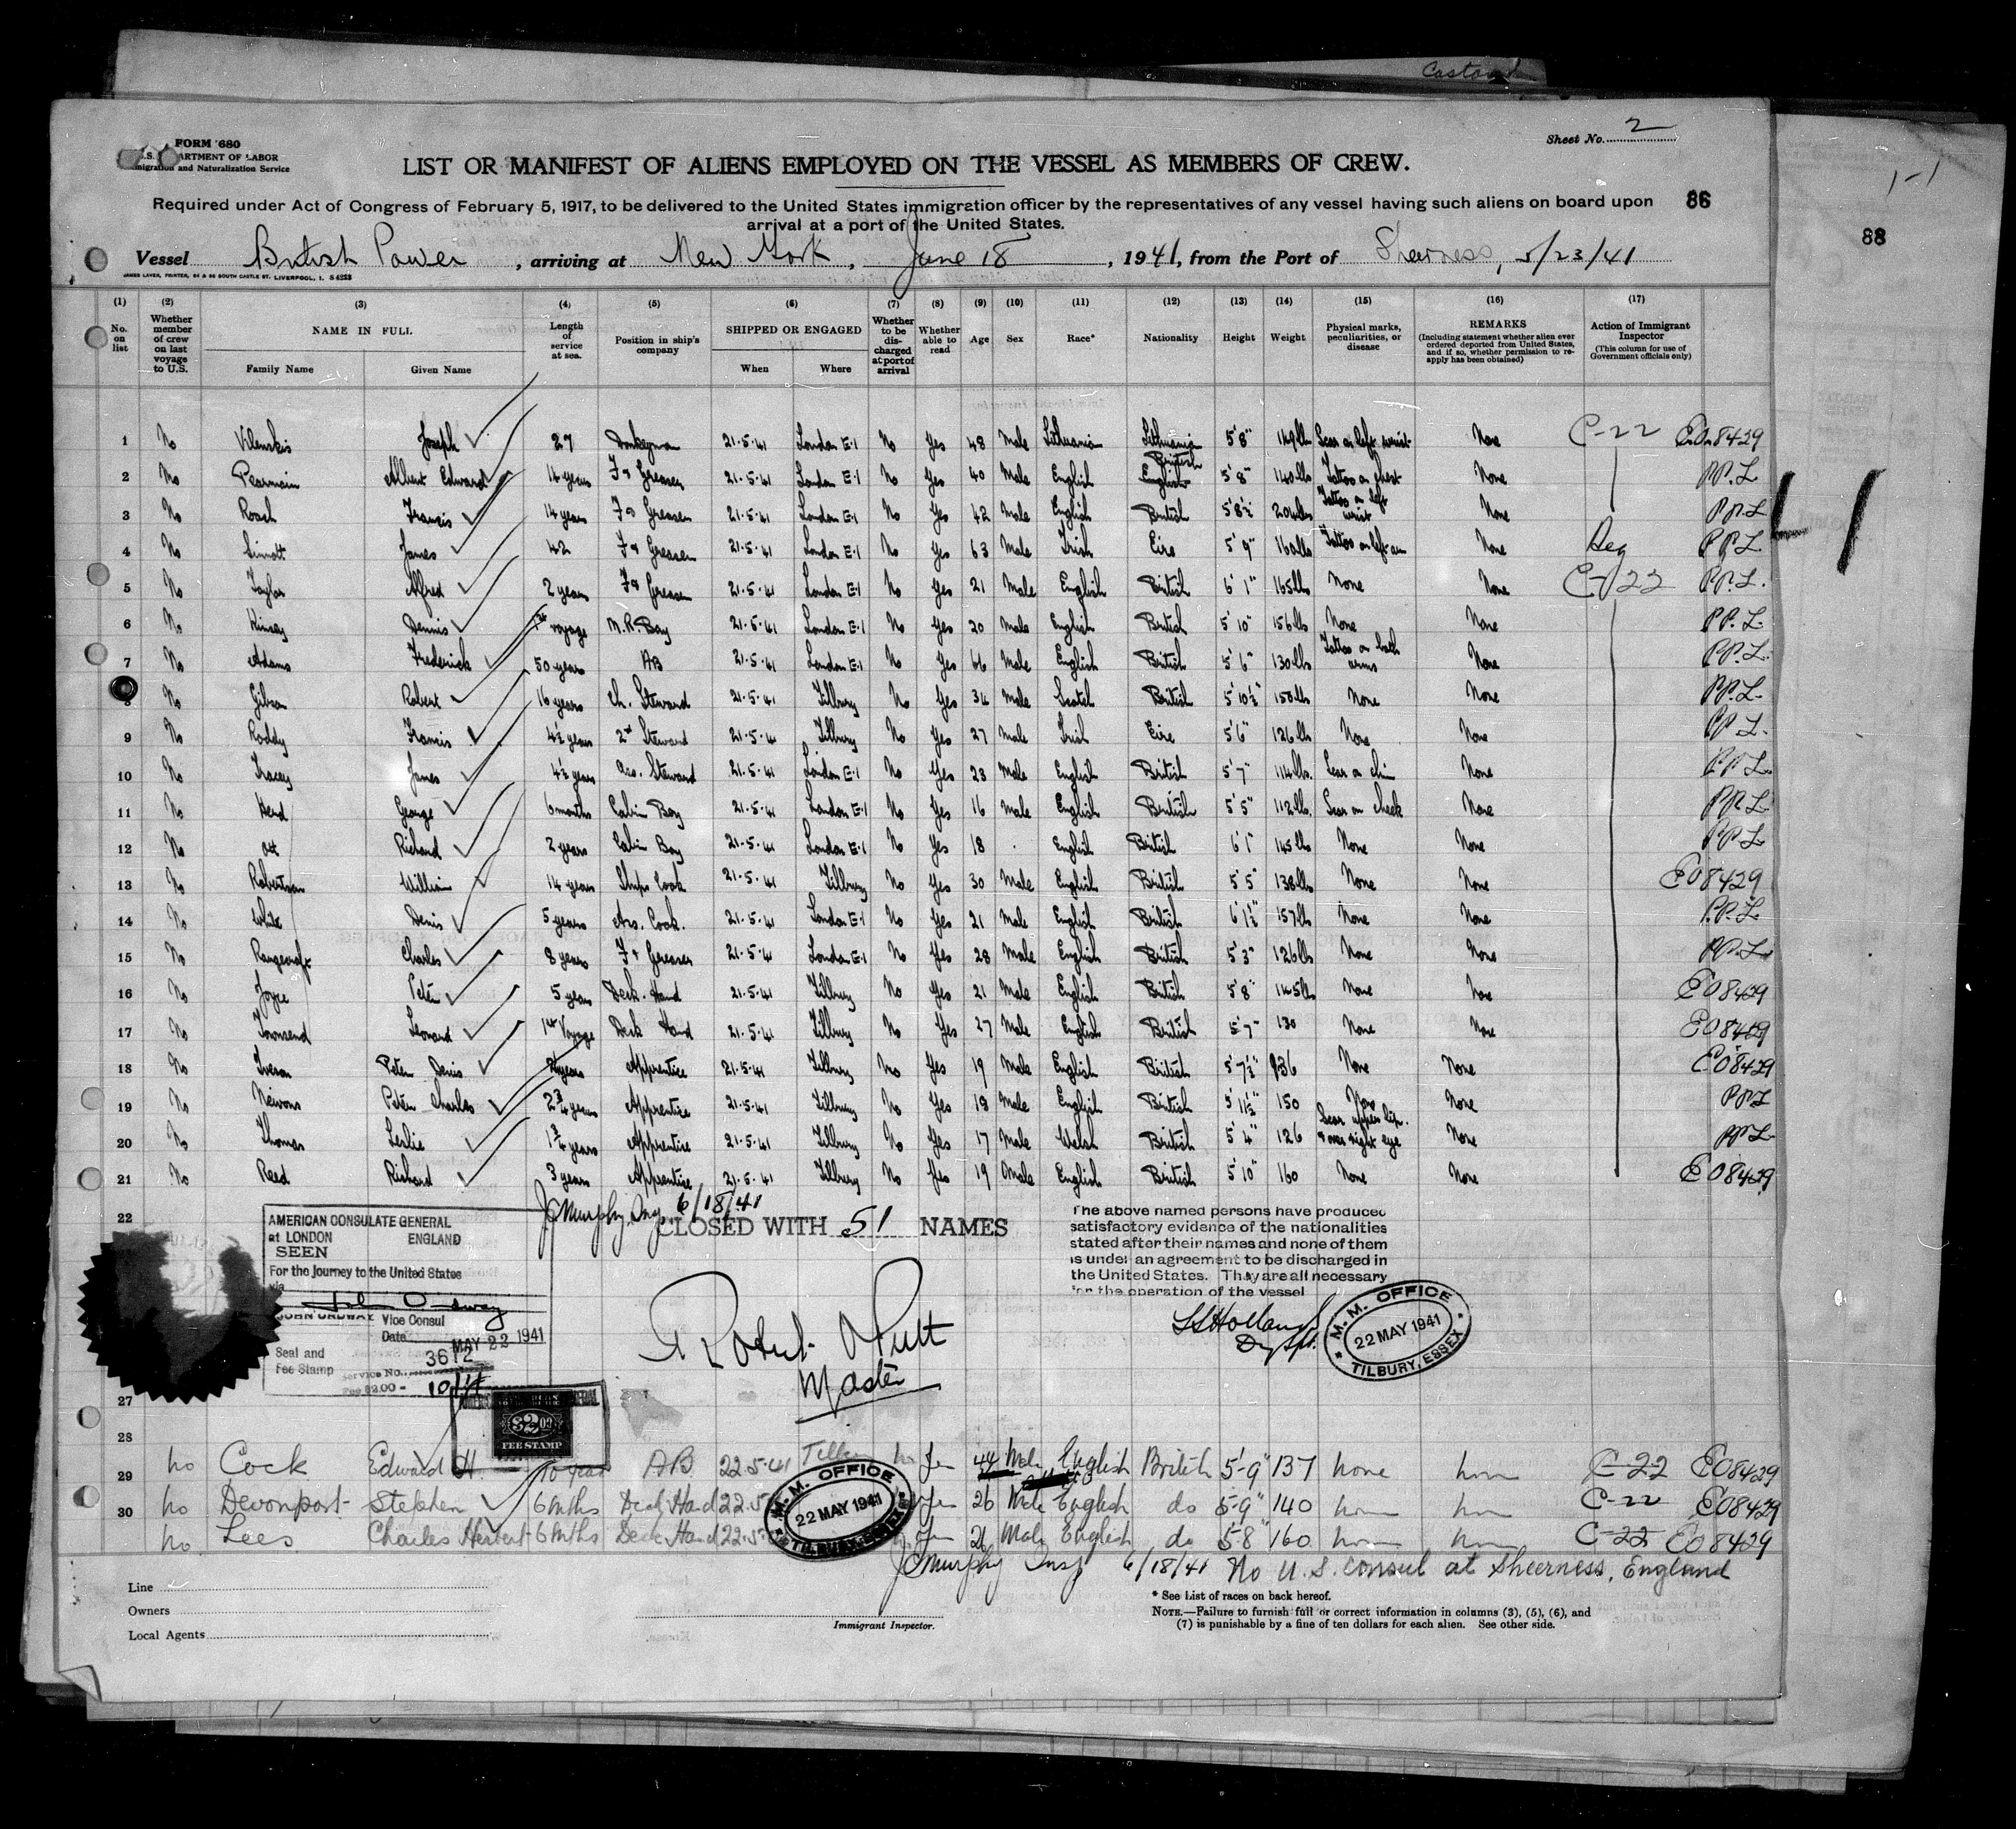 Sheet No. 2
FORM 680
U.S. DEPARTMENT OF LABOR
Immigration and Naturalization Service
LIST OR MANIFEST OF ALIENS EMPLOYED ON THE VESSEL AS MEMBERS OF CREW.
86
88
Required under Act of Congress of February 5, 1917, to be delivered to the United States immigration officer by the representatives of any vessel having such aliens on board upon
arrival at a port of the United States.
Vessel British Power, arriving at New York, June 18, 1941, from the Port of Sheerness, 5/23/41
JAMES LAVER, PRINTER, SOUTH CASTLE ST. LIVERPOOL, 1.
(1) (2) (3) (4) (5) (6) (7) (8) (9) (10) (11) (12) (13) (14) (15) (16) (17)
No. on list
Whether member of crew on last voyage to U.S.
NAME IN FULL
Family Name Given Name
Length of service at sea.
Position in ship's company
SHIPPED OR ENGAGED
When Where
Whether to be discharged at port of arrival
Whether able to read
Age Sex Race* Nationality Height Weight
Physical marks, peculiarities, or disease
REMARKS
(Including statement whether alien ever ordered deported from United States, and if so, whether permission to re-apply has been obtained)
Action of Immigrant Inspector
(This column for use of Government officials only)
1 No Vilenskis Joseph 27 Donkeyman 21.5.41 London E.1 No Yes 48 Male Lithuania Lithuania 5'8" 149lbs Scar on left wrist None C-22 E08429
2 No Pearmain Albert Edward 14 years F & Greaser 21.5.41 London E.1 No Yes 40 Male English British 5'8" 140lbs Tattoo on chest None P.P.L
3 No Roach Francis 14 years F & Greaser 21.5.41 London E.1 No Yes 42 Male English British 5'8½ 204lbs Tattoo on left wrist None P.P.L
4 No Sinnott James 42 F & Greaser 21.5.41 London E.1 No Yes 63 Male Irish Eire 5'9" 160lbs Tattoo on left arm None P.P.L.
5 No Taylor Alfred 2 years F & Greaser 21.5.41 London E.1 No Yes 21 Male English British 6'1" 165lbs None None C-22 P.P.L.
6 No Kinsey Dennis 1st voyage M.R. Boy 21.5.41 London E.1 No Yes 20 Male English British 5'10" 156lbs None None P.P.L.
7 No Adams Frederick 50 years AB 21.5.41 London E.1 No Yes 66 Male English British 5'6" 130lbs Tattoo on both arms None P.P.L.
8 No Gibson Robert 16 years Ch. Steward 21.5.41 Tilbury No Yes 34 Male Scotch British 5'10½" 150lbs None None P.P.L.
9 No Roddy Francis 4½ years 2nd Steward 21.5.41 Tilbury No Yes 27 Male Irish Eire 5'6" 126lbs None None P.P.L.
10 No Tracey James 4½ years Ass. Steward 21.5.41 London E.1 No Yes 23 Male English British 5'7" 114lbs. Scar on chin None P.P.L.
11 No Herd George 6 months Cabin Boy 21.5.41 London E.1 No Yes 16 Male English British 5'5" 112lbs. Scar on cheek None P.P.L.
12 No Richard 2 years Cabin Boy 21.5.41 London E.1 No Yes 18 English British 6'1" 145lbs None None P.P.L
13 No Robertson William 14 years Ships Cook 21.5.41 Tilbury No Yes 30 Male English British 5'5" 138lbs None None E08429
14 No White Denis 5 years Ass. Cook. 21.5.41 London E.1 No Yes 21 Male English British 6'1½" 157lbs None None P.P.L
15 No Rangecroft Charles 8 years F & Greaser 21.5.41 London E.1 No Yes 28 Male English British 5'3" 126lbs None None P.P.L
16 No Joyce Peter 5 years Deck. Hand 21.5.41 Tilbury No Yes 21 Male English British 5'8" 145lbs None None E08429
17 No Townsend Leonard 1st Voyage Deck Hand 21.5.41 Tilbury No Yes 27 Male English British 5'7" 130 None None E08429
18 No Iveson Peter Denis years Apprentice 21.5.41 Tilbury No Yes 19 Male English British 5'7½" 136 None None E08429
19 No Peter Charles 2¾ years Apprentice 21.5.41 Tilbury No Yes 18 Male English British 5'11½" 150 None None PPL
20 No Thomas Leslie 1¾ years Apprentice 21.5.41 Tilbury No Yes 17 Male Welsh British 5'4" 126 Scar upper lip. & over right eye None PPL
21 No Reed Richard 3 years Apprentice 21.5.41 Tilbury No Yes 19 Male English British 5'10" 160 None None E08429
J C Murphy Insp. 6/18/41
22
CLOSED WITH 51 NAMES
The above named persons have produced
satisfactory evidence of the nationalities
stated after their names and none of them
is under an agreement to be discharged in
the United States. They are all necessary
for the operation of the vessel
AMERICAN CONSULATE GENERAL
at LONDON ENGLAND
SEEN
For the journey to the United States
via
JOHN ORDWAY Vice Consul
Date MAY 22 1941
Seal and
Fee Stamp
Service No. 3612
Fee $2.00 =
FEE STAMP
Master
M. M. OFFICE
22 MAY 1941
TILBURY, ESSEX
27
28
No Cock Edward H. 10 year AB 22.5.41 no Yes 44 Male English British 5-9" 137 none C-22 E08429
29
no Devonport Stephen 6 mths Deck Hand 22.5 Yes 26 Male English do 5-9" 140 C-22 E08429
30
no Lees Charles Herbert 6 mths Deck Hand 22.5 Yes 26 Male English do 5-8" 160 C-22 E08429
M. M. OFFICE
22 MAY 1941
TILBURY, ESSEX
J C Murphy Insp 6/18/41 No U.S. Consul at Sheerness, England
Line
Owners
Local Agents
Immigrant Inspector.
* See List of races on back hereof.
NOTE.—Failure to furnish full or correct information in columns (3), (5), (6), and
(7) is punishable by a fine of ten dollars for each alien. See other side.